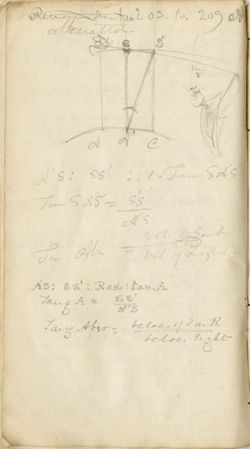 203. to. 209
aberration
S' S S'
A A' C
A'S : SS' :: 1 : Tan SA'S'
Tan SA'S' = SS'
A'S
Tan Ab'r = vel. of Earth
vel of Light
A'S : SS' : Rad : tan. A
Tang A = SS'
A'S
Tang Aber = veloc. of Earth
veloc. light